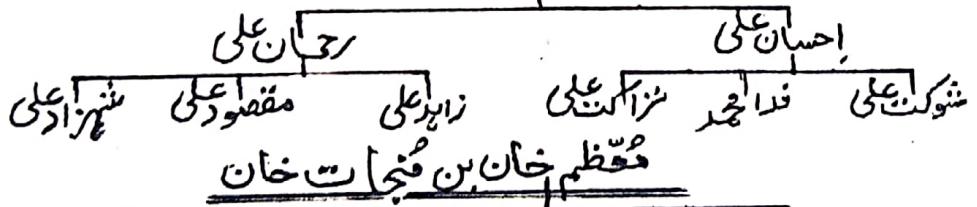 إحسان علی رحمان علی
شوکت علی فدا محمد نزاکت علی زاہد علی مقصود علی شہزاد علی
مُعّظم خان بن مُنجات خان